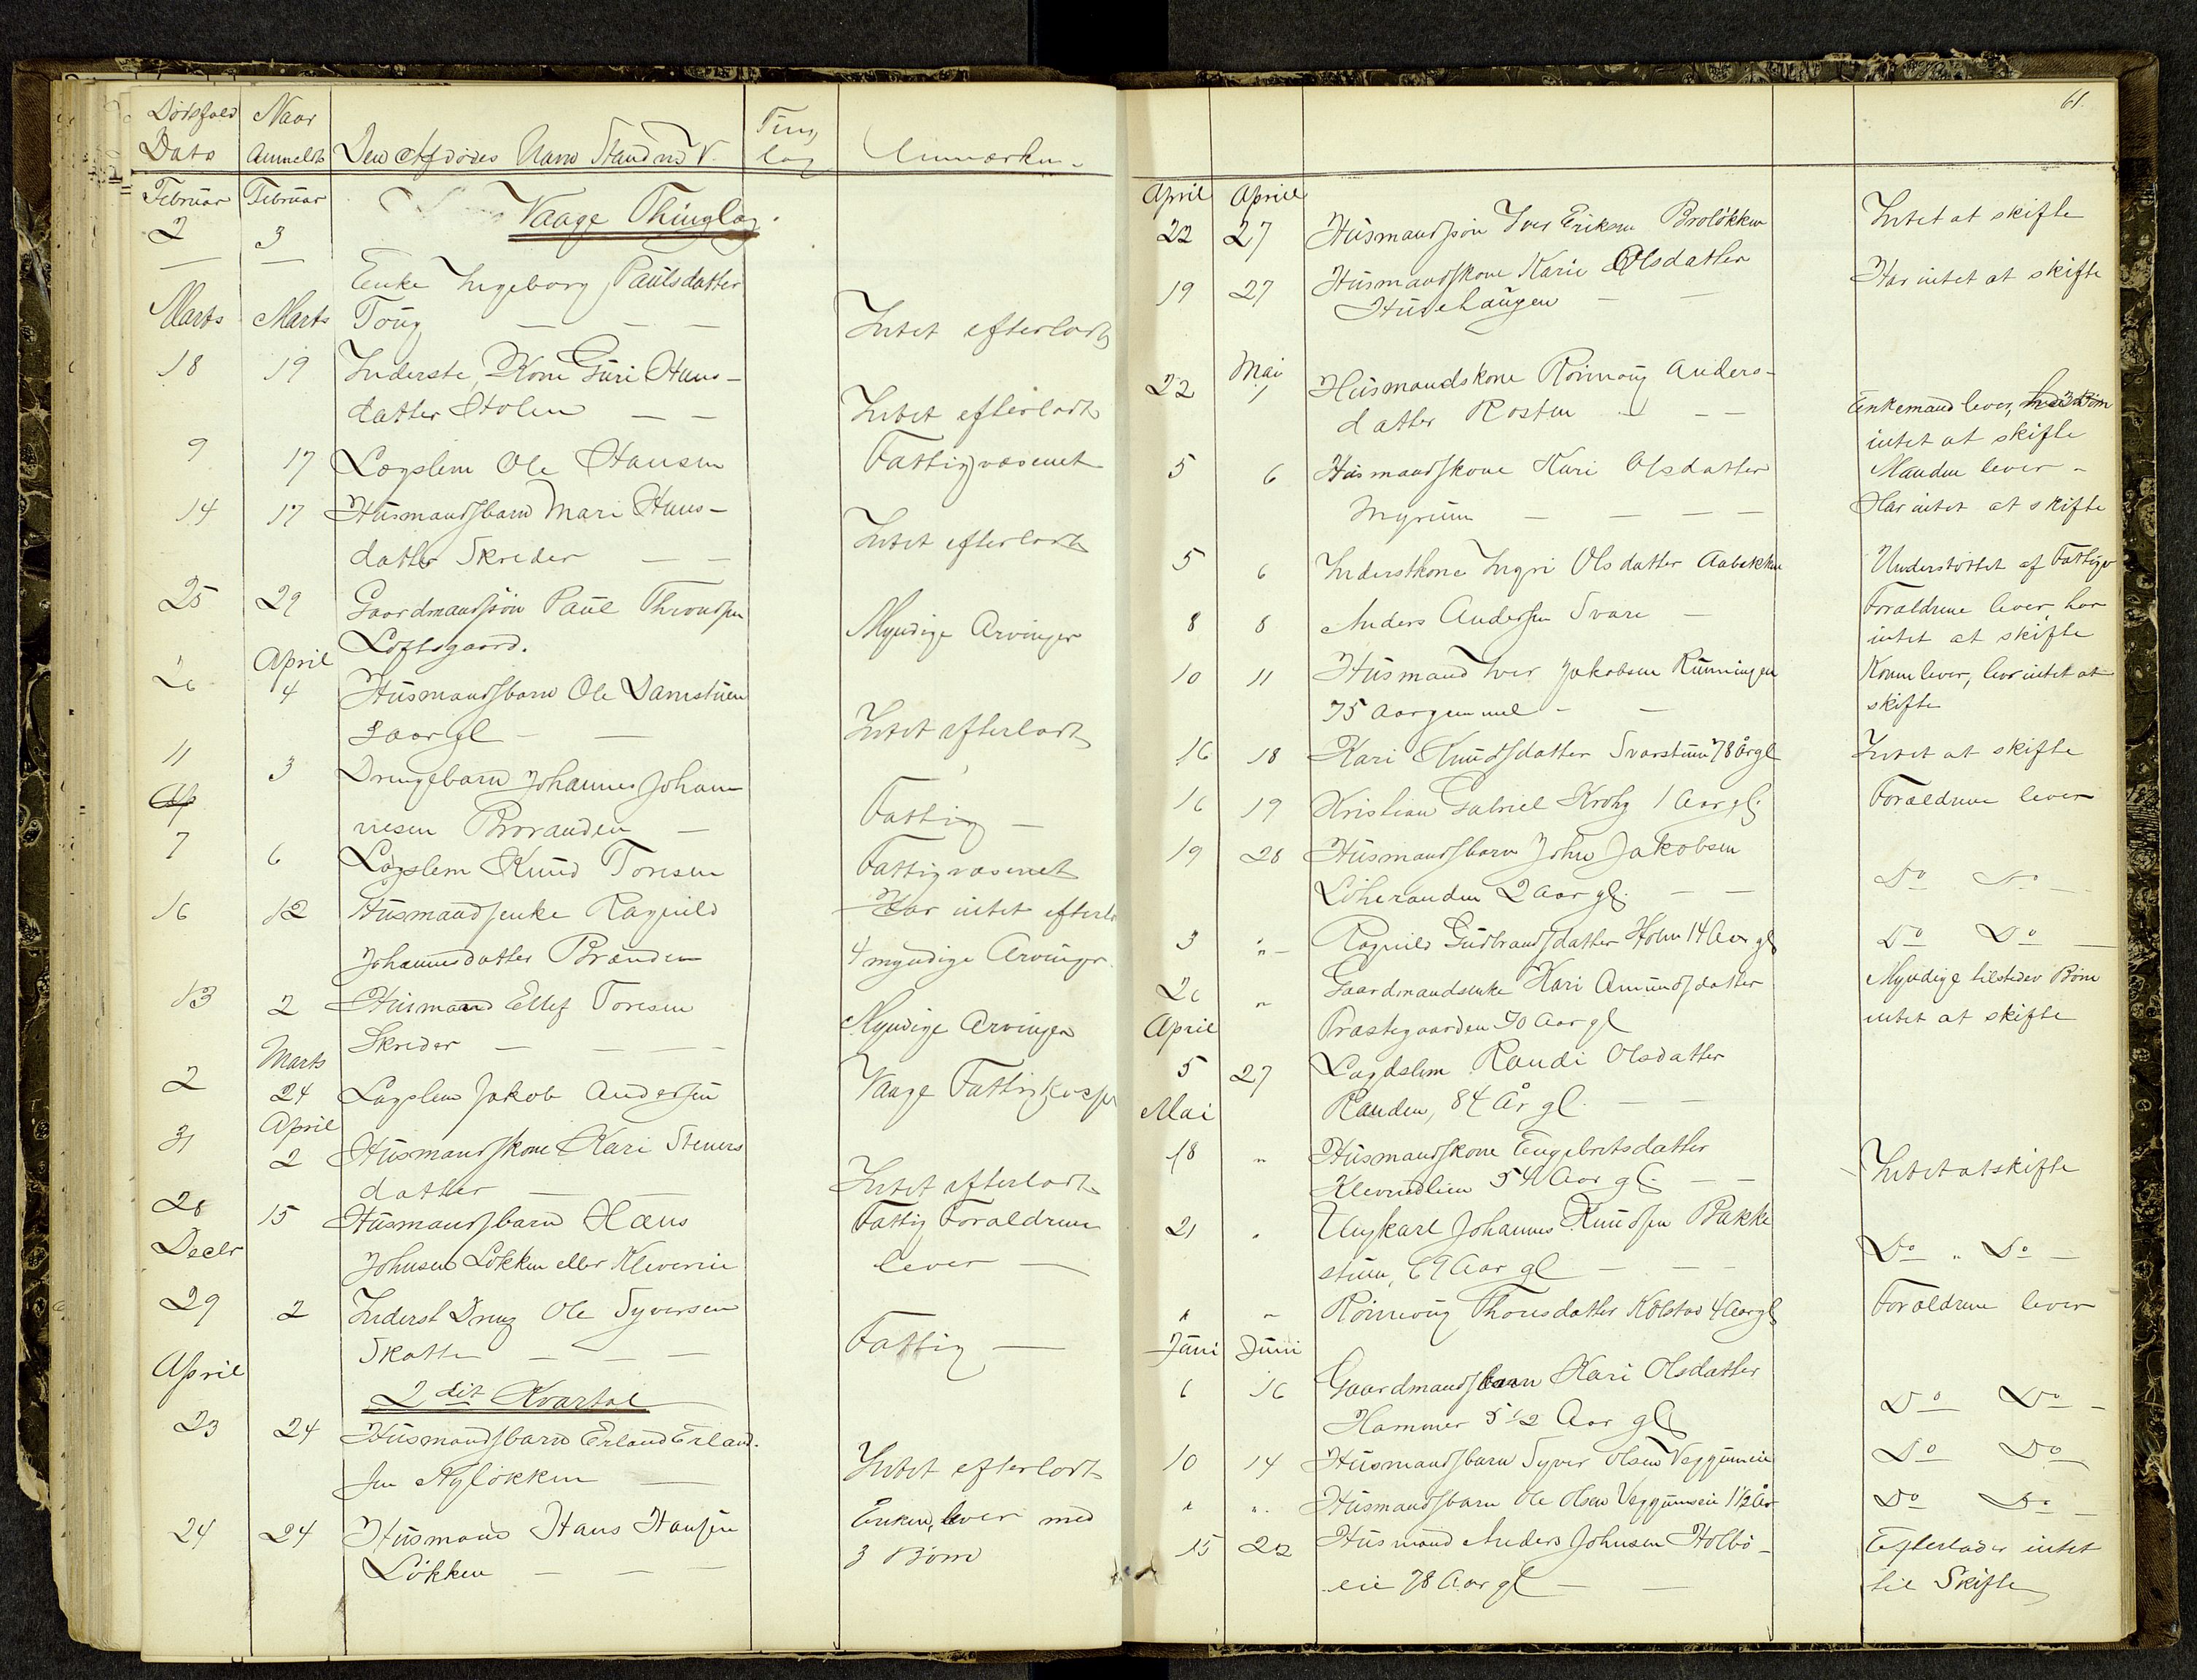 Dødsfald Naar
Dato Anmeldt Den Afdødes Navn Stand osv. Ting
lag Anmærkn.
Februar Februar Vaage Thinglag.
2 3
Enke Ingeborg Paulsdatter
Marts Marts Toug — — — Intet efterladt
18 19 Inderste Kone Guri Hans-
datter Stolen — — Intet efterladt
9 17 Lægslem Ole Hansen Fattigvæsenet
14 17 Husmandsbarn Mari Hans-
datter Skreder — — Intet efterladt
25 29 Gaardmandssøn Paul Throndsen
Loftsgaard. Myndige Arvinger
April
26 4 Husmandsbarn Ole Damstuen
Aar gl — — Intet efterladt
11 3 Drengebarn Johannes Johan-
nesen Broranden — Fattig —
7 6 Lægslem Knud Toresen Fattigvæsenet
16 12 Husmandsenke Ragnild Har intet efterl
Johannesdatter Branden 4 myndige Arvinger.
13 2 Husmand Ellef Toresen
Skreder — — — Myndige Arvinger
Marts
2 24 Lægslem Jakob Andersen Vaage Fattigkasse
April
31 2 Husmandskone Kari Steners
datter — — Intet efterladt
28 15 Husmandsbarn Hans Fattig Forældrene
Decbr Johnsen Løkken eller Kleverie lever —
29 2 Inderst Dreng Ole Syversen
Skotte — — — Fattig —
April
2det Kvartal
23 24 Husmandsbarn Erland Erland-
sen Nyløkken — Intet efterladt
24 24 Husmand Hans Hansen Enken, lever med
Løkken — — — 3 Børn
61.
April April
22 27 Husmandssøn Iver Eriksen Broløkken Intet at skifte
19 27 Husmandskone Kari Olsdatter Har intet at skifte
Husehaugen — —
Mai
22 1 Husmandskone Rønnoug Anders-
datter Rosten — — Enkemand lever, Børn
intet at skifte
5 6 Husmandskone Kari Olsdatter Manden lever -
Myrum — — — — Har intet at skifte
5 6 Inderstkone Ingri Olsdatter Aabakken Understøttet af Fattigv
8 8 Anders Andersen Svare — Forældrene lever har
intet at skifte
10 11 Husmand Iver Jakobsen Runningen Konen lever, har intet at
75 Aar gammel - — skifte
16 18 Kari Knudsdatter Svarstuen 78 År gl Intet at skifte
16 19 Kristian Gabriel Krohg 1 Aar gl. Forældrene lever
19 28 Husmandsbarn John Jakobsen
Løkeranden 2 Aar gl. — — Do Do
3 " Ragnild Gudbrandsdatter Holen 14 Aar gl Do Do —
26 " Gaardmandsenke Kari Amundsdatter Myndige tilstede Børn
April Præstegaarden 70 Aar gl intet at skifte
5 27 Lægdslem Randi Olsdatter
Mai Randen, 84 År gl. — —
18 " Husmandskone Engebretsdatter
Klevrudlien 54 Aar gl. — — Intet at skifte
21 " Ungkarl Johannes Knudsen Bakke-
stuen, 69 Aar gl — — Do " Do —
" " Rønnoug Thorsdatter Kolstad 4 Aar gl Forældrene lever
Juni Juni
6 16 Gaardmandsbarn Kari Olsdatter
Hammer 5 1/2 Aar gl Do Do —
10 14 Husmandsbarn Syver Olsen Veggumeie Do Do
" " Husmandsbarn Ole Olsen Veggumseie 1 1/2 År Do Do —
15 22 Husmand Anders Johnsen Holbø- Efterlader intet
eie 78 Aar gl — — til Skifte